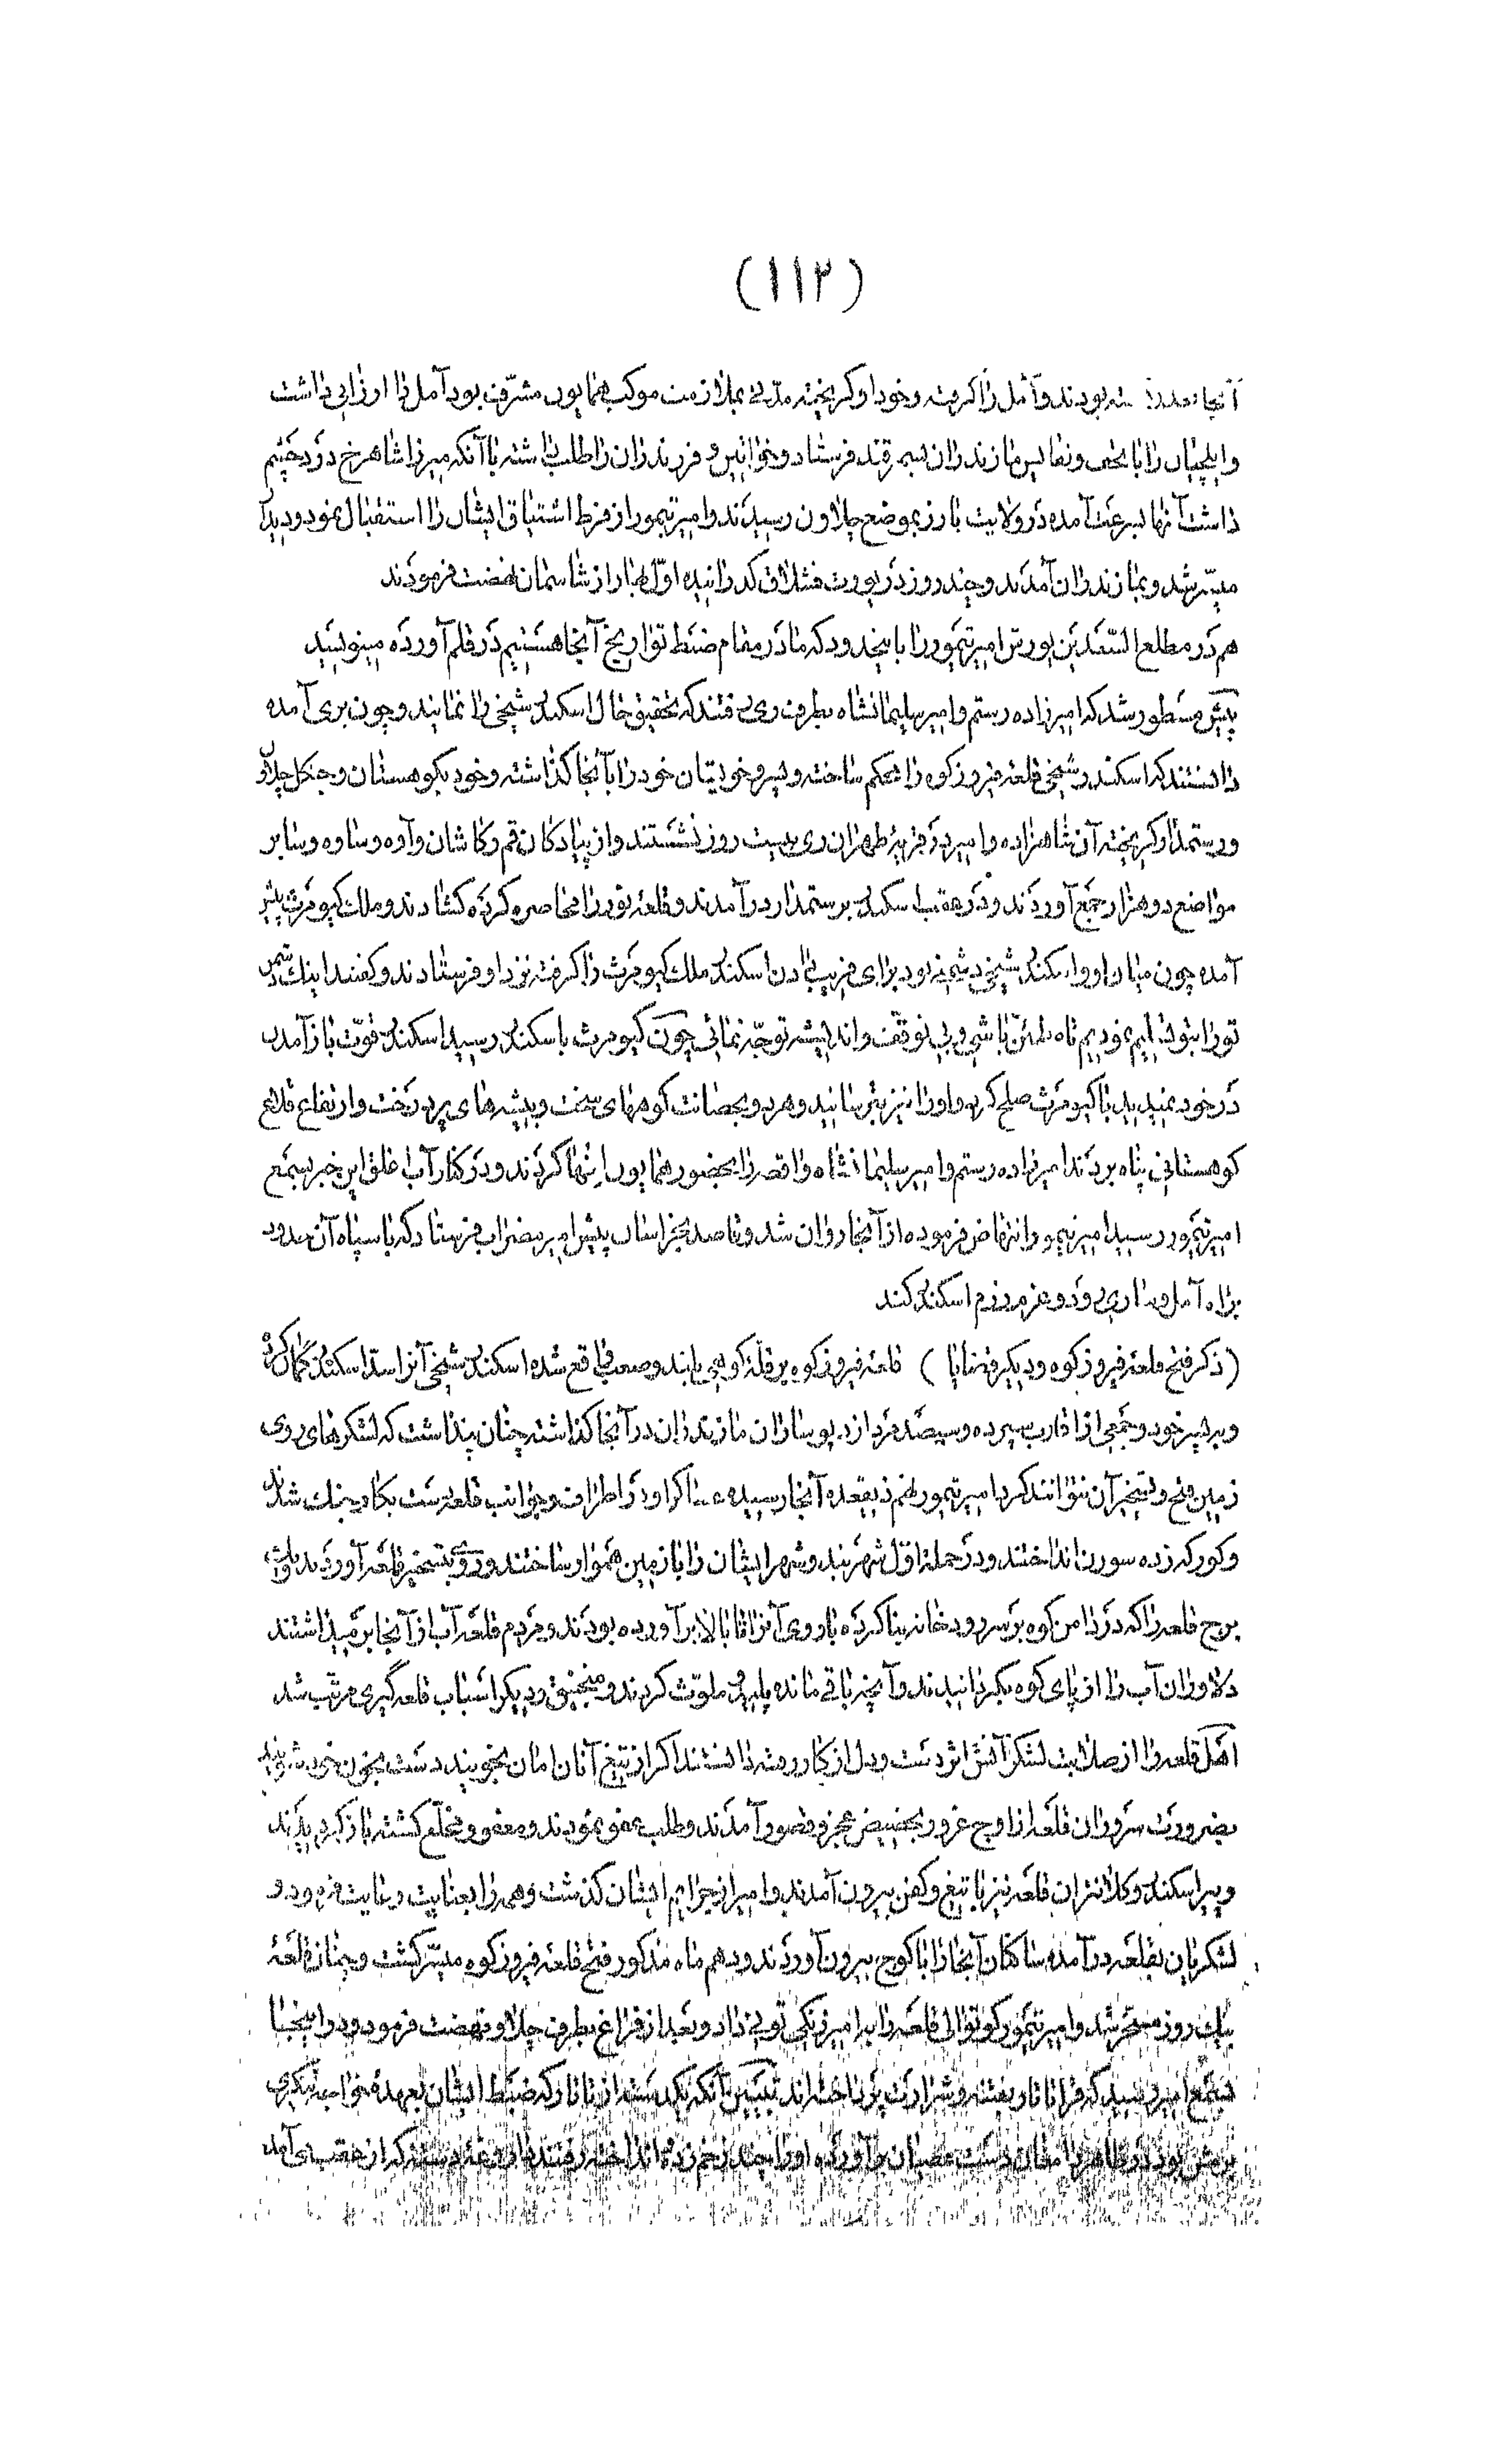 (۱۱۳)
بودند و آمل را گرفته و خود او گریخته مدتی بملازمت موکب همایون مشرف بود آمل را باو ارزانی داشت
و ایلچیان را با تحف و نفایس مازندران بسمرقند فرستاد و خواتین و فرزندان را طلب داشته تا آنکه میرزا شاهرخ درد چشم
داشت آنها بسرعت آمده در ولایت بموضع چلاون رسیدند و امیر تیمور از فرط اشتیاق ایشان را استقبال نمود و دیدار
میسّر شد و بمازندران آمدند و چند روز در یورت قشلاق گذرانیده اوّل بهار از شاسمان نهضت فرمودند
هم در مطلع السّعدین یورش امیر تیمور را باینحدود که ما در مقام ضبط تواریخ آنجا هستیم در قلم آورده مینویسد
پیش مسطور شد که امیرزاده رستم و امیر سلیمانشاه بطرف ری رفتند که تحقیق حال اسکندر شیخی را نمایند و چون بری آمده
دانستند که اسکندر شیخی قلعه فیروزکوه را محکم ساخته و پسر و خویشان خود را بآنجا گذاشته و خود بکوهستان و جنگل چلاو
و رستمدار گریخته آن شاهزاده و امیر در قریهٔ طهران ری بیست روز نشستند و از پیادگان قم و کاشان و آوه و ساوه و سایر
مواضع دو هزار جمع آوردند و در عقب اسکندر برستمدار درآمدند و قلعهٔ نور را محاصره کرده گشادند و ملک کیومرث پیش
آمده چون میان او و اسکندر شیخی دشمنی بود برای فریب دادن اسکندر ملک کیومرث را گرفته نزد او فرستادند و گفتند اینک دشمن
تو را بتو تسلیم نمودیم تا مطمئن باشی و بی توقّف و اندیشه توجّه نمائی چون کیومرث باسکندر رسید اسکندر قوّت بازآمدن
در خود ندید با کیومرث صلح کرد و او را نیز بترسانید و هر دو بحصانت کوههای سخت و بیشه‌های پردرخت و ارتفاع قلاع
کوهستانی پناه بردند امیرزاده رستم و امیر سلیمانشاه واقعه را بحضور همایون انها کردند و در کنار آب اغلق این خبر بسمع
امیر تیمور رسید امیر تیمور انتهاض فرموده از آنجا روان شد و قاصد بخراسان پیش امیر مضراب فرستاد که با سپاه آن حدود
براه آمل و ساری رود و عزم رزم اسکندر کند
(ذکر فتح قلعهٔ فیروزکوه و دیگر قضایا) قلعهٔ فیروزکوه بر قلّهٔ کوهی بلند و صعب واقع شده اسکندر شیخی آنرا سد اسکندر گمان کرده
و بر پسر خود و جمعی از اقارب سپرده و سیصد مرد از دیوساران مازندران در آنجا گذاشته چنان پنداشت که لشکرهای روی
زمین فتح و تسخیر آن نتوانند کرد امیر تیمور نهم ذیقعده آنجا رسیده عساکر او در اطراف و جوانب قلعه دست بکار جنگ شدند
و کورکه زده سورن انداختند و در حملهٔ اوّل شهربند و شهر ایشان را با زمین هموار ساختند و روی بتسخیر قلعه آوردند
برج قلعه را که در دامن کوه بر سر رودخانه بنا کرده باروی آنرا تا بالا برآورده بودند و مردم قلعه آب از آنجا برمیداشتند
دلاوران آب را از پای کوه بگردانیدند و آنچه باقی مانده پلید و ملوّث کردند و منجنیق و دیگر اسباب قلعه گیری مرتّب شد
اهل قلعه را از صلابت لشکر آتش اثر دست و دل از کار رفته دانستند اگر از تیغ آنان امان نجویند دست بخون خود شویند
بضرورت سروران قلعه از اوج غرور بحضیض عجز و قصور آمدند و طلب عفو نمودند و معفو و مخلّع گشته بازگردیدند
و پسر اسکندر و کلانتران قلعه نیز با تیغ و کفن بیرون آمدند و امیر از جرایم ایشان گذشت و همه را بعنایت رعایت فرمود و
لشکریان بقلعه درآمده ساکنان آنجا را با کوچ بیرون آوردند و دهم ماه مذکور فتح قلعهٔ فیروزکوه میسّر گشت و چنان قلعهٔ
بیک روز مسخّر شد و امیر تیمور کوتوالی قلعه را بامیر زنگی تونی داد و بعد از فراغ بطرف چلاو نهضت فرمود و در اینجا
بسمع امیر رسید که قراتاتار بفتنه و شرارت پرداخته‌اند تبیین آنکه یکدسته از تاتار که ضبط ایشان بعهدهٔ
بود در ظاهر دامغان دست عصیان برآورده او را چند زخم زده انداخته رفتند که از عقب می‌آمد